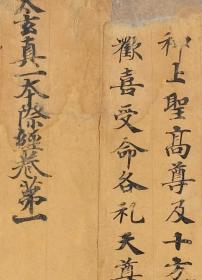 和上聖髙尊及十方
歡喜受命各礼天尊
太玄真一本際經卷第一